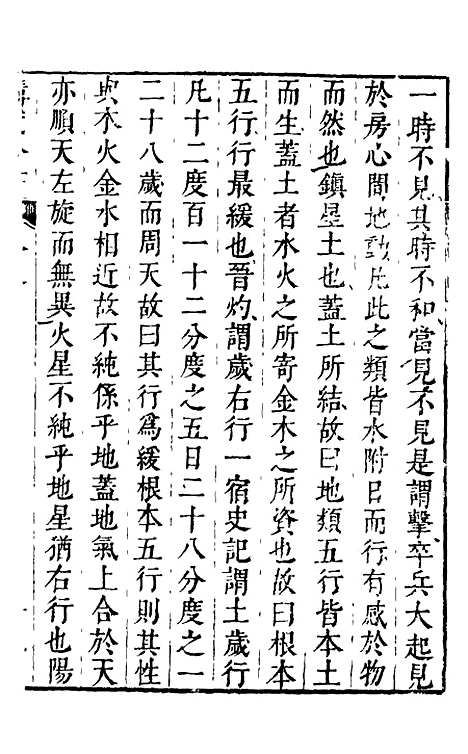 一時不見其時不和當見不見是謂擊卒兵大起見
於房心間地動凡此之類皆水附日而行有感於物
而然也鎮星土也蓋土所結故曰地類五行皆本土
而生蓋土者水火之所寄金木之所資也故曰根本
五行行最緩也晉灼謂歲右行一宿史記謂土歲行
凡十二度百一十二分度之五日二十八分度之一
二十八歲而周天故曰其行爲緩根本五行則其性
與木火金水相近故不純係乎地蓋地氣上合於天
亦順天左旋而無異火星不純乎地星猶右行也陽